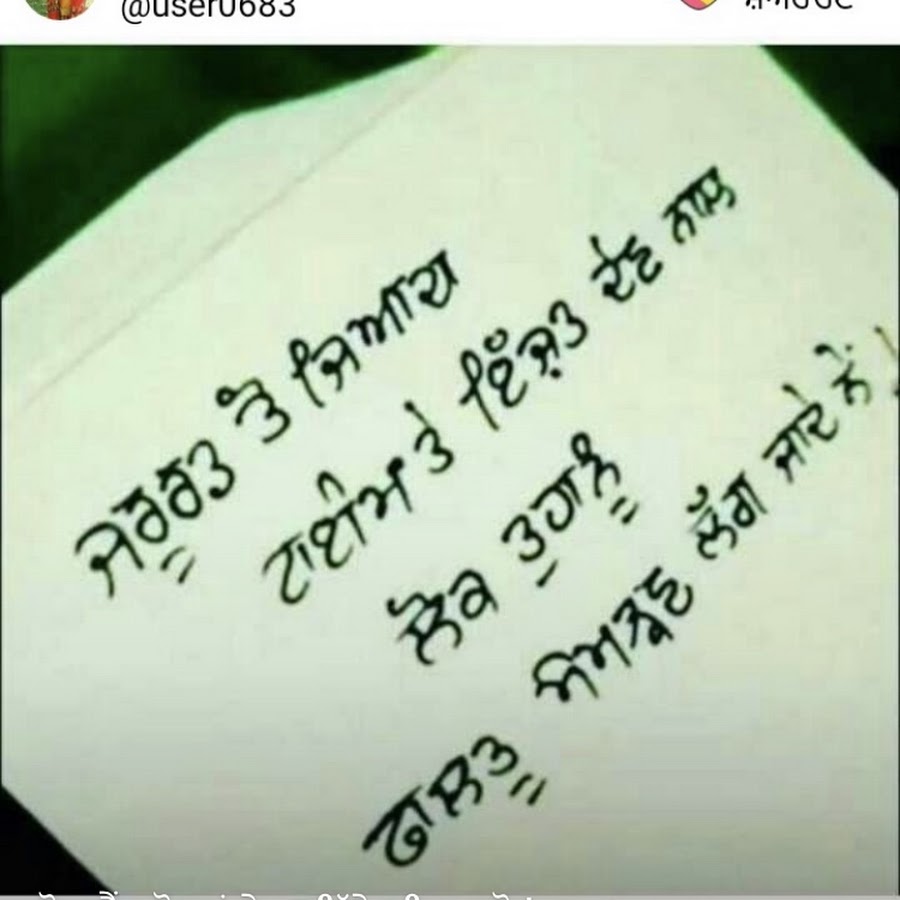 @user0683
ਜਰੂਰਤ ਤੋਂ ਜਿਆਦਾ
ਟਾਈਮ ਤੇ ਇੱਜ਼ਤ ਦੇਣ ਨਾਲ
ਲੋਕ ਤੁਹਾਨੂੰ
ਫਾਲਤੂ ਸਮਝਣ ਲੱਗ ਜਾਦੇ ਨੇਂ